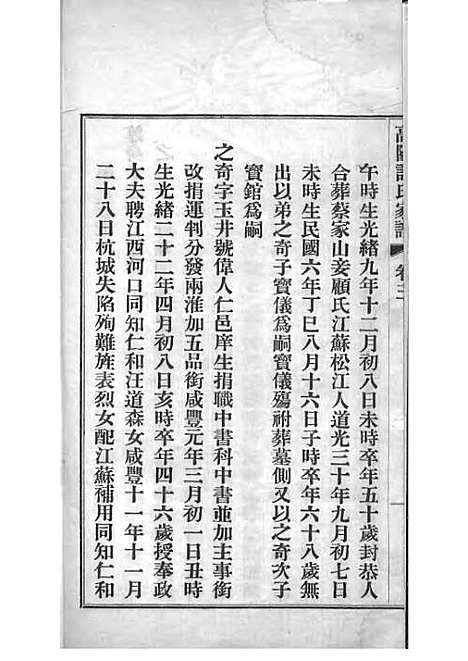 高陽許氏家譜 卷三
午時生光緒九年十二月初八日未時卒年五十歲封恭人
合葬蔡家山妾顧氏江蘇松江人道光三十年九月初七日
未時生民國六年丁巳八月十六日子時卒年六十八歲無
出以弟之奇子寶儀爲嗣寶儀殤祔葬墓側又以之奇次子
寶錧爲嗣
之奇字玉井號偉人仁邑庠生捐職中書科中書並加主事銜
改捐運判分發兩淮加五品銜咸豐元年三月初一日丑時
生光緒二十二年四月初八日亥時卒年四十六歲授奉政
大夫聘江西河口同知仁和汪道森女咸豐十一年十一月
二十八日杭城失陷殉難旌表烈女配江蘇補用同知仁和